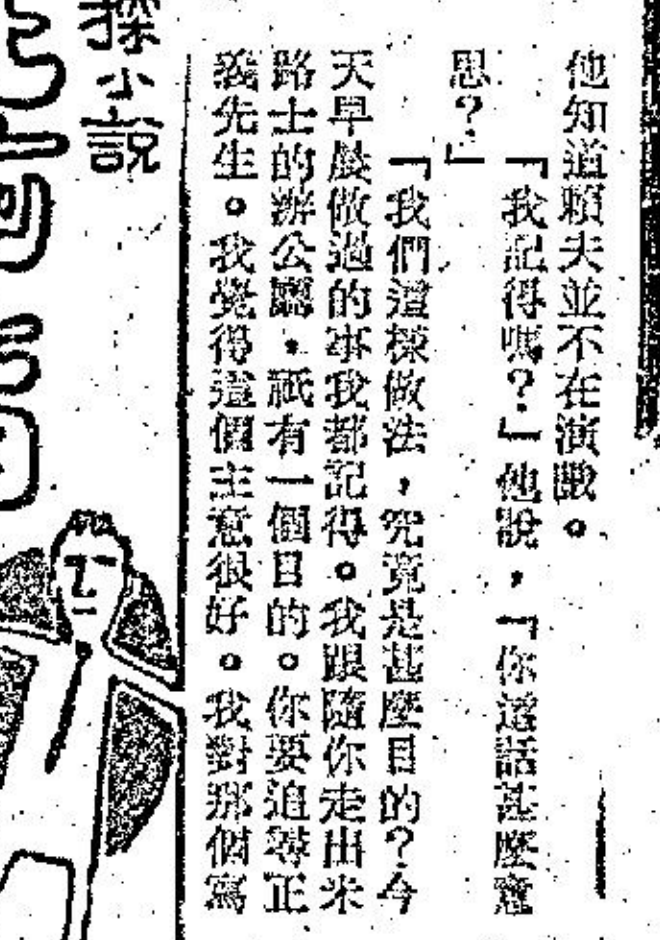 他知道賴夫並不在演戲。
「我記得嗎？」他說，「你這話甚麼意
思？」
「我們這樣做法，究竟是甚麼目的？今
天早晨做過的事我都記得。我跟隨你走出米
路士的辦公廳，祇有一個目的。你要追尋正
義先生。我覺得這個主意很好。我對那個寫
探小說